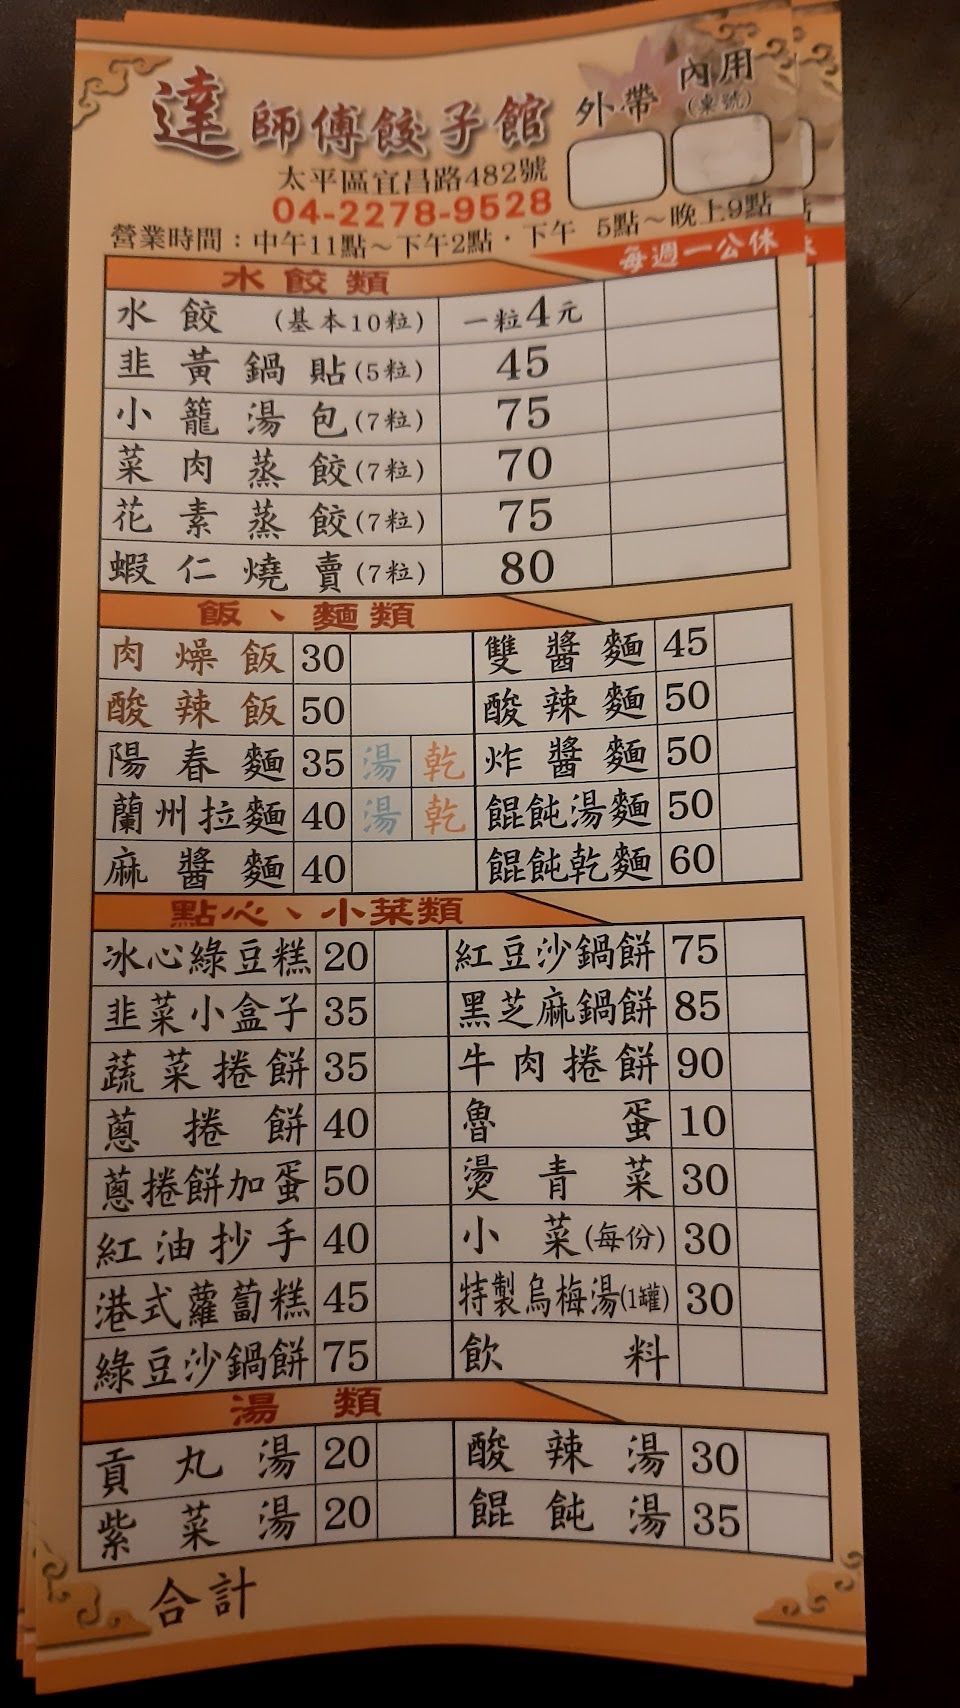 達師傅餃子館
外帶
內用
(桌號)
太平區宜昌路482號
04-2278-9528
營業時間：中午11點～下午2點．下午 5點～晚上9點
每週一公休
水餃類
水餃 (基本10粒) 一粒4元
韭黃鍋貼(5粒) 45
小籠湯包(7粒) 75
菜肉蒸餃(7粒) 70
花素蒸餃(7粒) 75
蝦仁燒賣(7粒) 80
飯、麵類
肉燥飯 30 雙醬麵 45
酸辣飯 50 酸辣麵 50
陽春麵 35 湯 乾 炸醬麵 50
蘭州拉麵 40 湯 乾 餛飩湯麵 50
麻醬麵 40 餛飩乾麵 60
點心、小菜類
冰心綠豆糕 20 紅豆沙鍋餅 75
韭菜小盒子 35 黑芝麻鍋餅 85
蔬菜捲餅 35 牛肉捲餅 90
蔥捲餅 40 魯蛋 10
蔥捲餅加蛋 50 燙青菜 30
紅油抄手 40 小菜(每份) 30
港式蘿蔔糕 45 特製烏梅湯(1罐) 30
綠豆沙鍋餅 75 飲料
湯類
貢丸湯 20 酸辣湯 30
紫菜湯 20 餛飩湯 35
合計